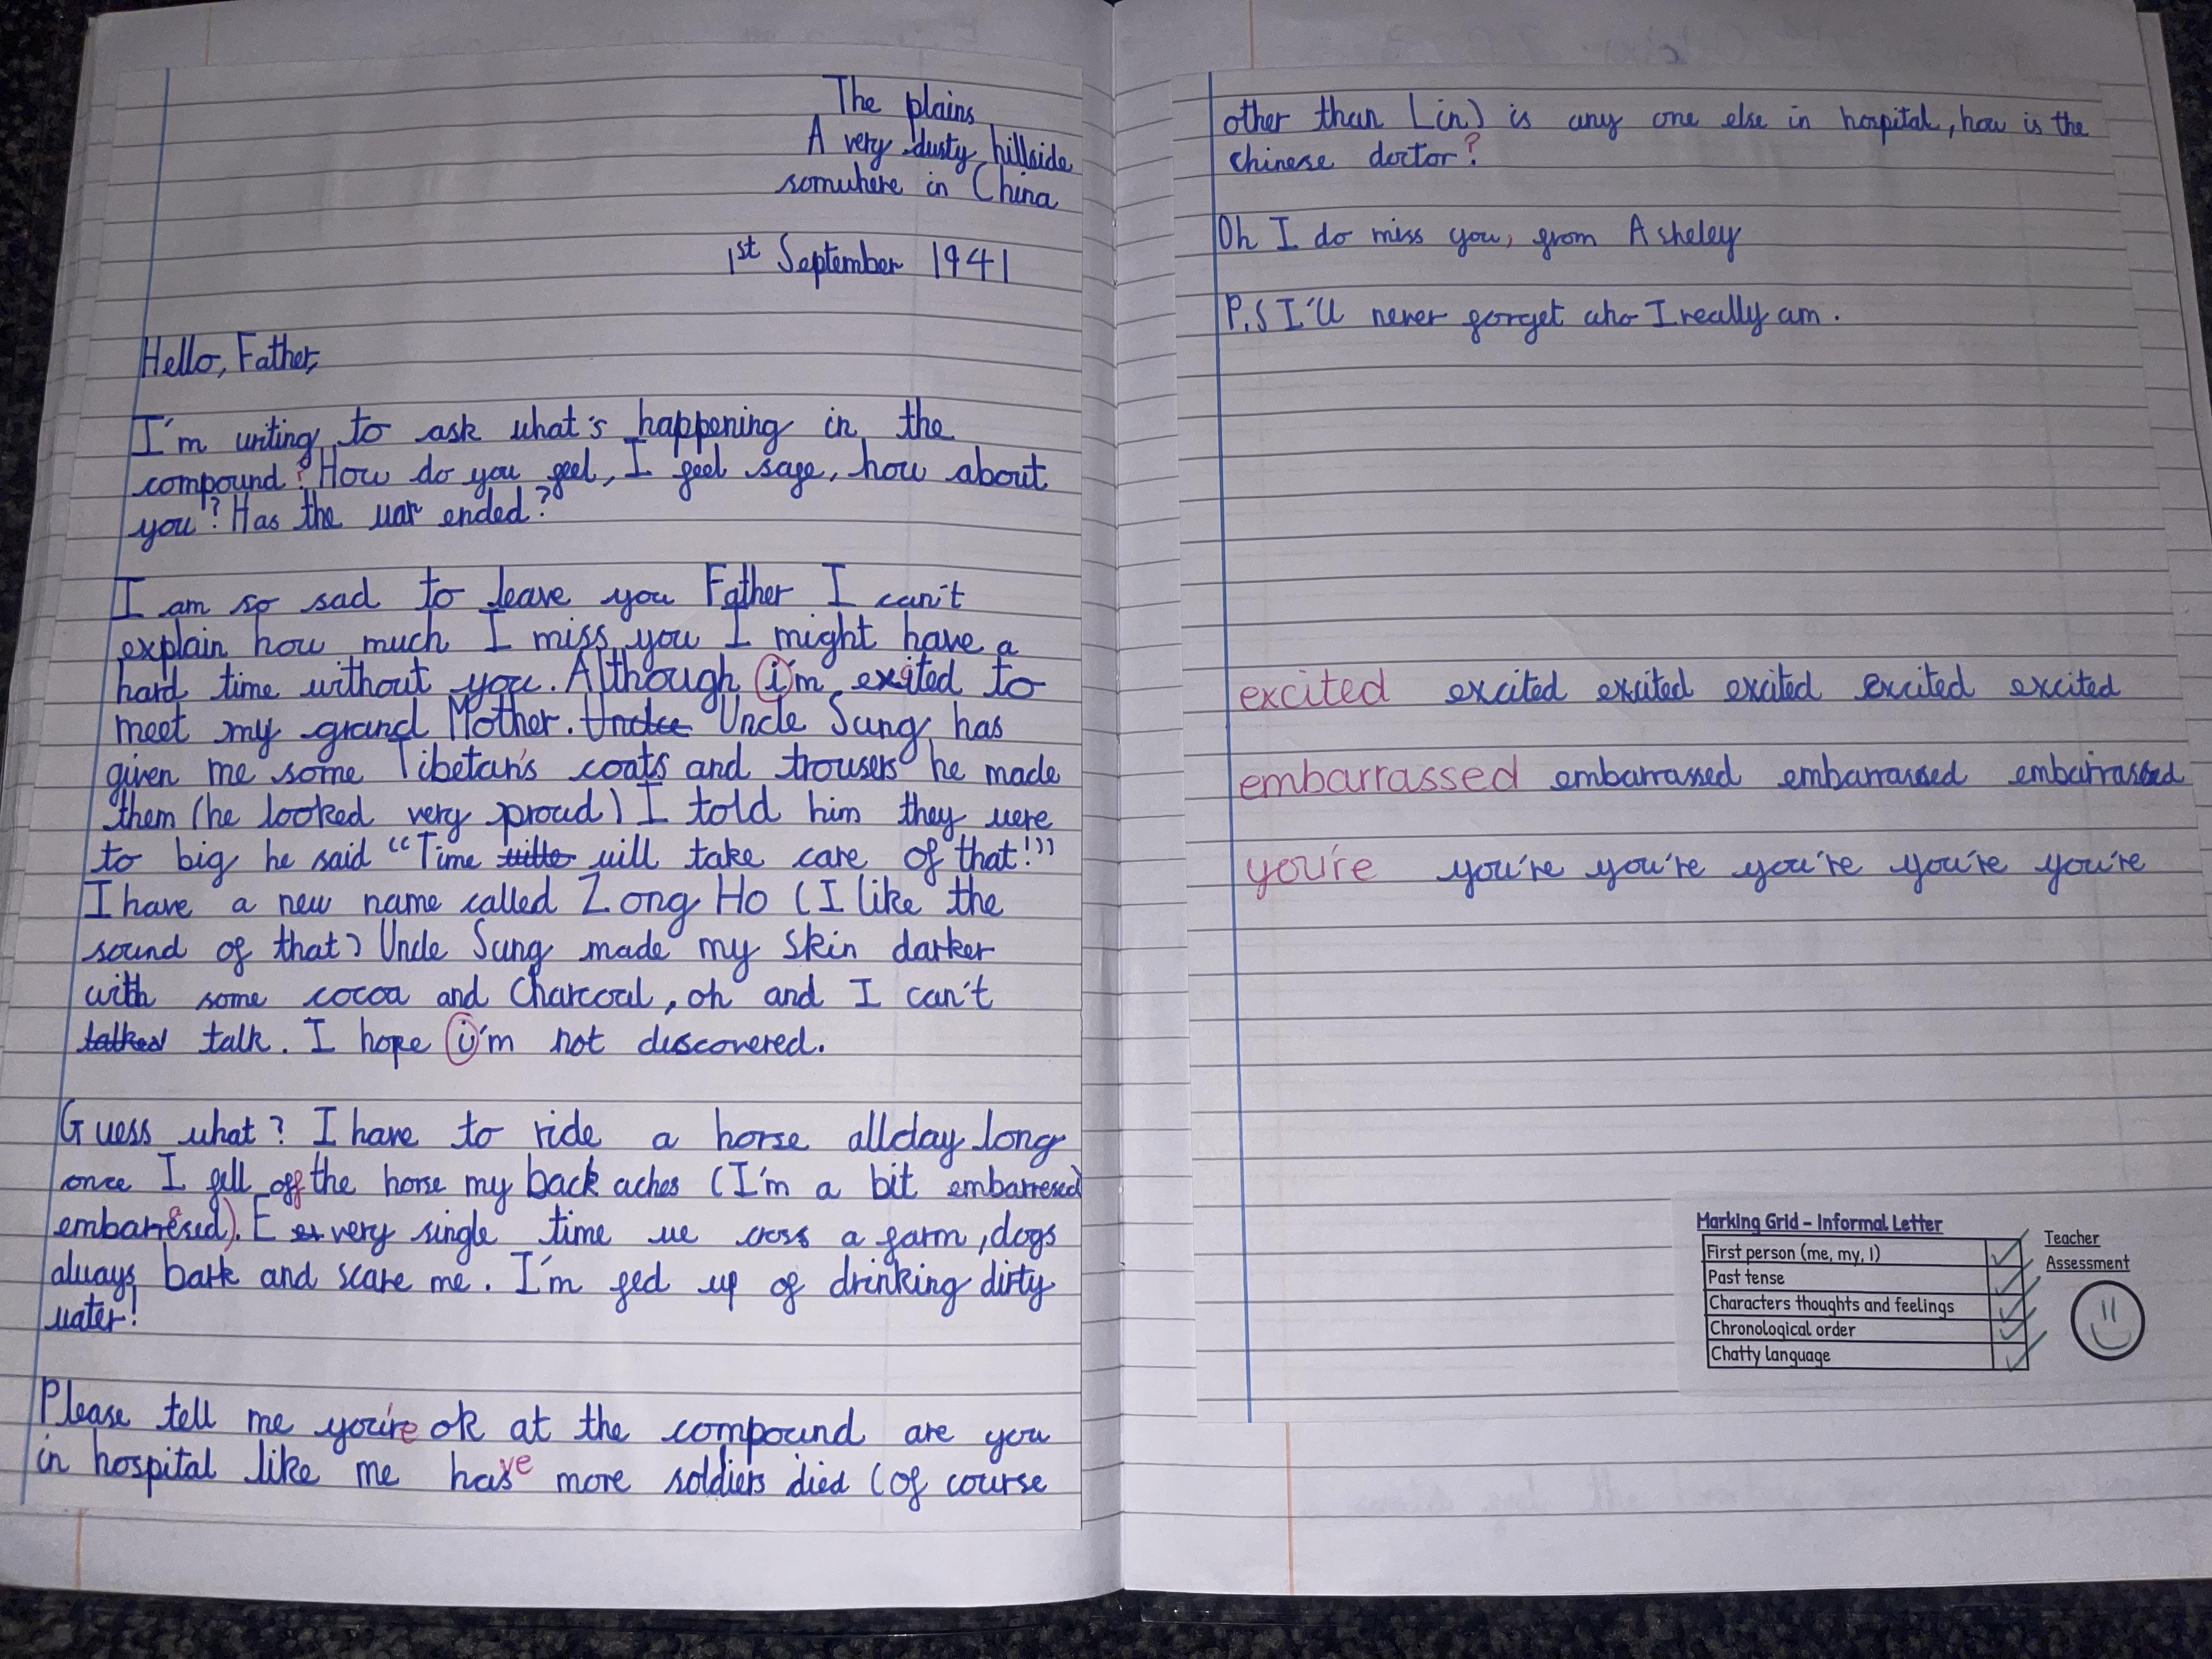 The plains
A very dusty hillside
somwhere in China
1st September 1941
Hello, Father,
I'm writing to ask what's happening in the
compound? How do you feel, I feel safe, how about
you? Has the war ended?
I am so sad to leave you Father I can't
explain how much I miss you I might have a
hard time without you. Although i'm excited to
meet my grand Mother. Undce Uncle Sung has
given me some Tibetan's coats and trousers he made
them (he looked very proud) I told him they were
to big he said "Time will take care of that!"
I have a new name called Zong Ho (I like the
sound of that) Uncle Sung made my skin darker
with some cocoa and Charcoal, oh and I can't
talked talk. I hope i'm not discovered.
Guess what? I have to ride a horse allday long
once I fell off the horse my back aches (I'm a bit embarresed
embarresed). Every single time we cross a farm, dogs
always bark and scare me. I'm fed up of drinking dirty
water!
Please tell me you're ok at the compound are you
in hospital like me have more soldiers died (of course
other than Lin) is any one else in hospital, how is the
chinese doctor?
Oh I do miss you, from Asheley
P.S I'll never forget who I really am.
excited excited excited excited excited excited
embarrassed embarrassed embarrassed embarrassed
you're you're you're you're you're you're
Marking Grid – Informal Letter
Teacher
Assessment
First person (me, my, I)
Past tense
Characters thoughts and feelings
Chronological order
Chatty language